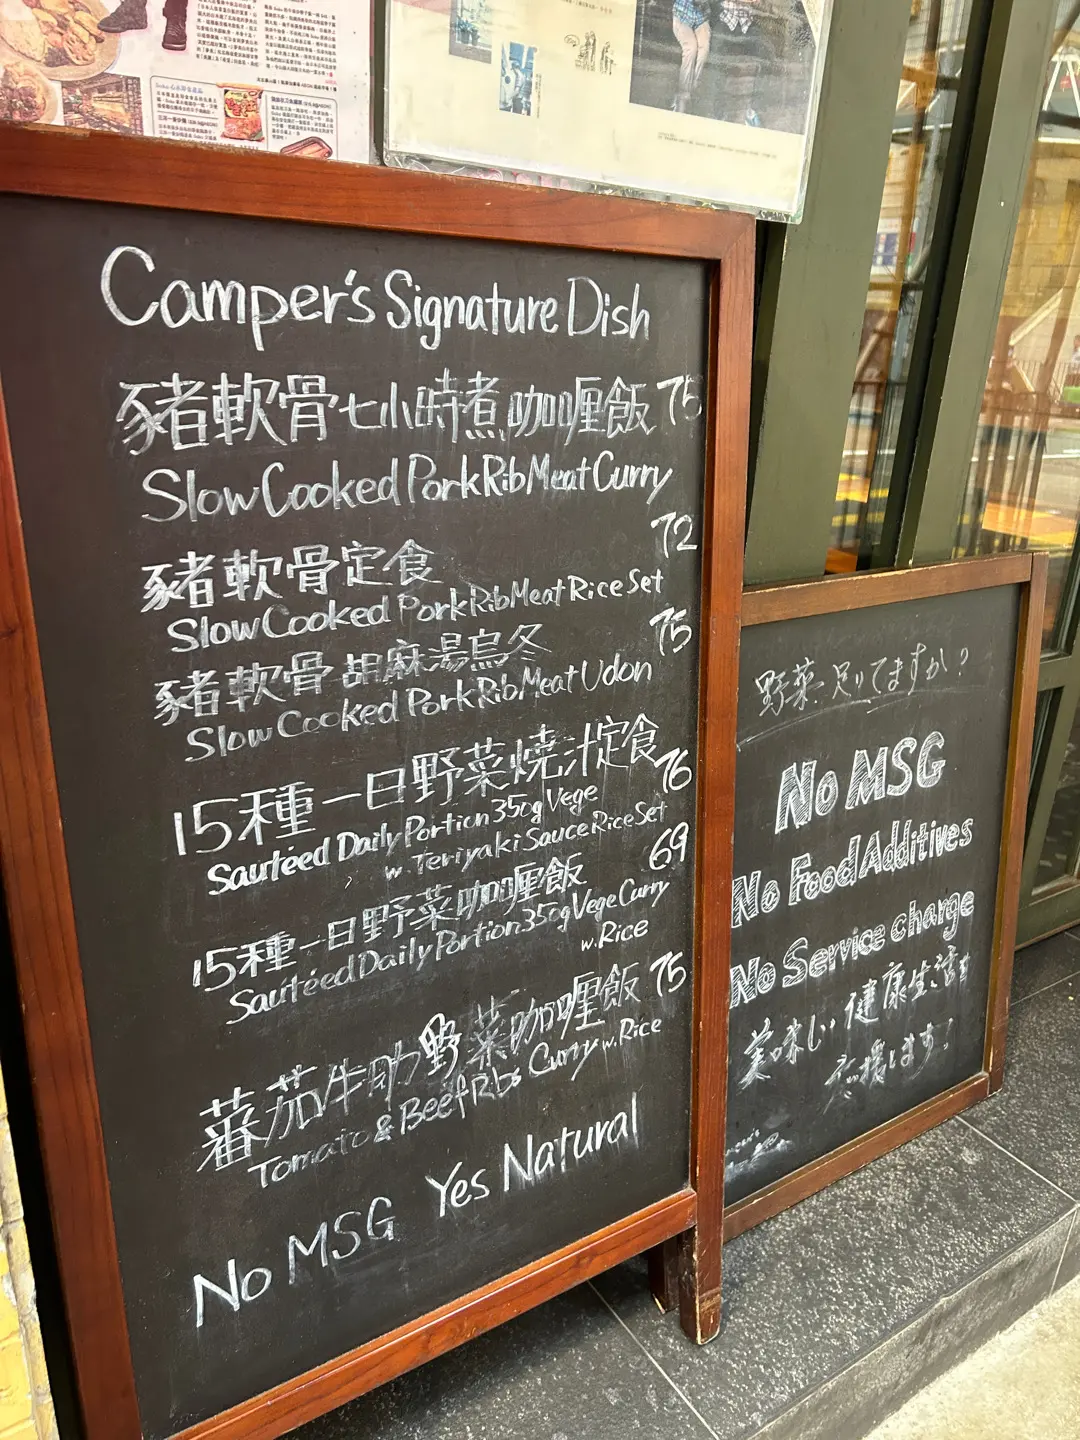 Camper's Signature Dish
豬軟骨七小時煮咖喱飯 75
Slow Cooked Pork Rib Meat Curry
72
豬軟骨定食
Slow Cooked Pork Rib Meat Rice Set
75
豬軟骨胡麻湯烏冬
Slow Cooked Pork Rib Meat Udon
15種一日野菜燒汁定食 76
Sautéed Daily Portion 350g Vege
w. Teriyaki Sauce Rice Set
69
15種一日野菜咖喱飯
Sautéed Daily Portion 350g Vege Curry
w. Rice
蕃茄牛肋野菜咖喱飯 75
Tomato & Beef Ribs Curry w. Rice
No MSG Yes Natural
野菜足りてますか?
No MSG
No Food Additives
No Service charge
美味しい健康生活を
応援します!